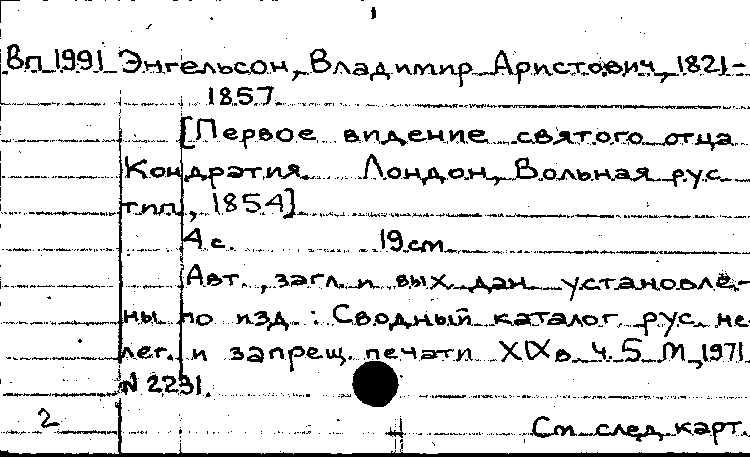 Вп 1991 Энгельсон, Владимир Аристович, 1821-
1857.
[Первое видение святого отца
Кондратия. Лондон, Вольная рус.
тип., 1854].
4 с. 19 см.
Авт., загл. и вых. дан. установле-
ны по изд.: Сводный каталог рус. не-
лег. и запрещ. печати XIX в. Ч. 5. М., 1971,
N 2231.
2
См. след. карт.